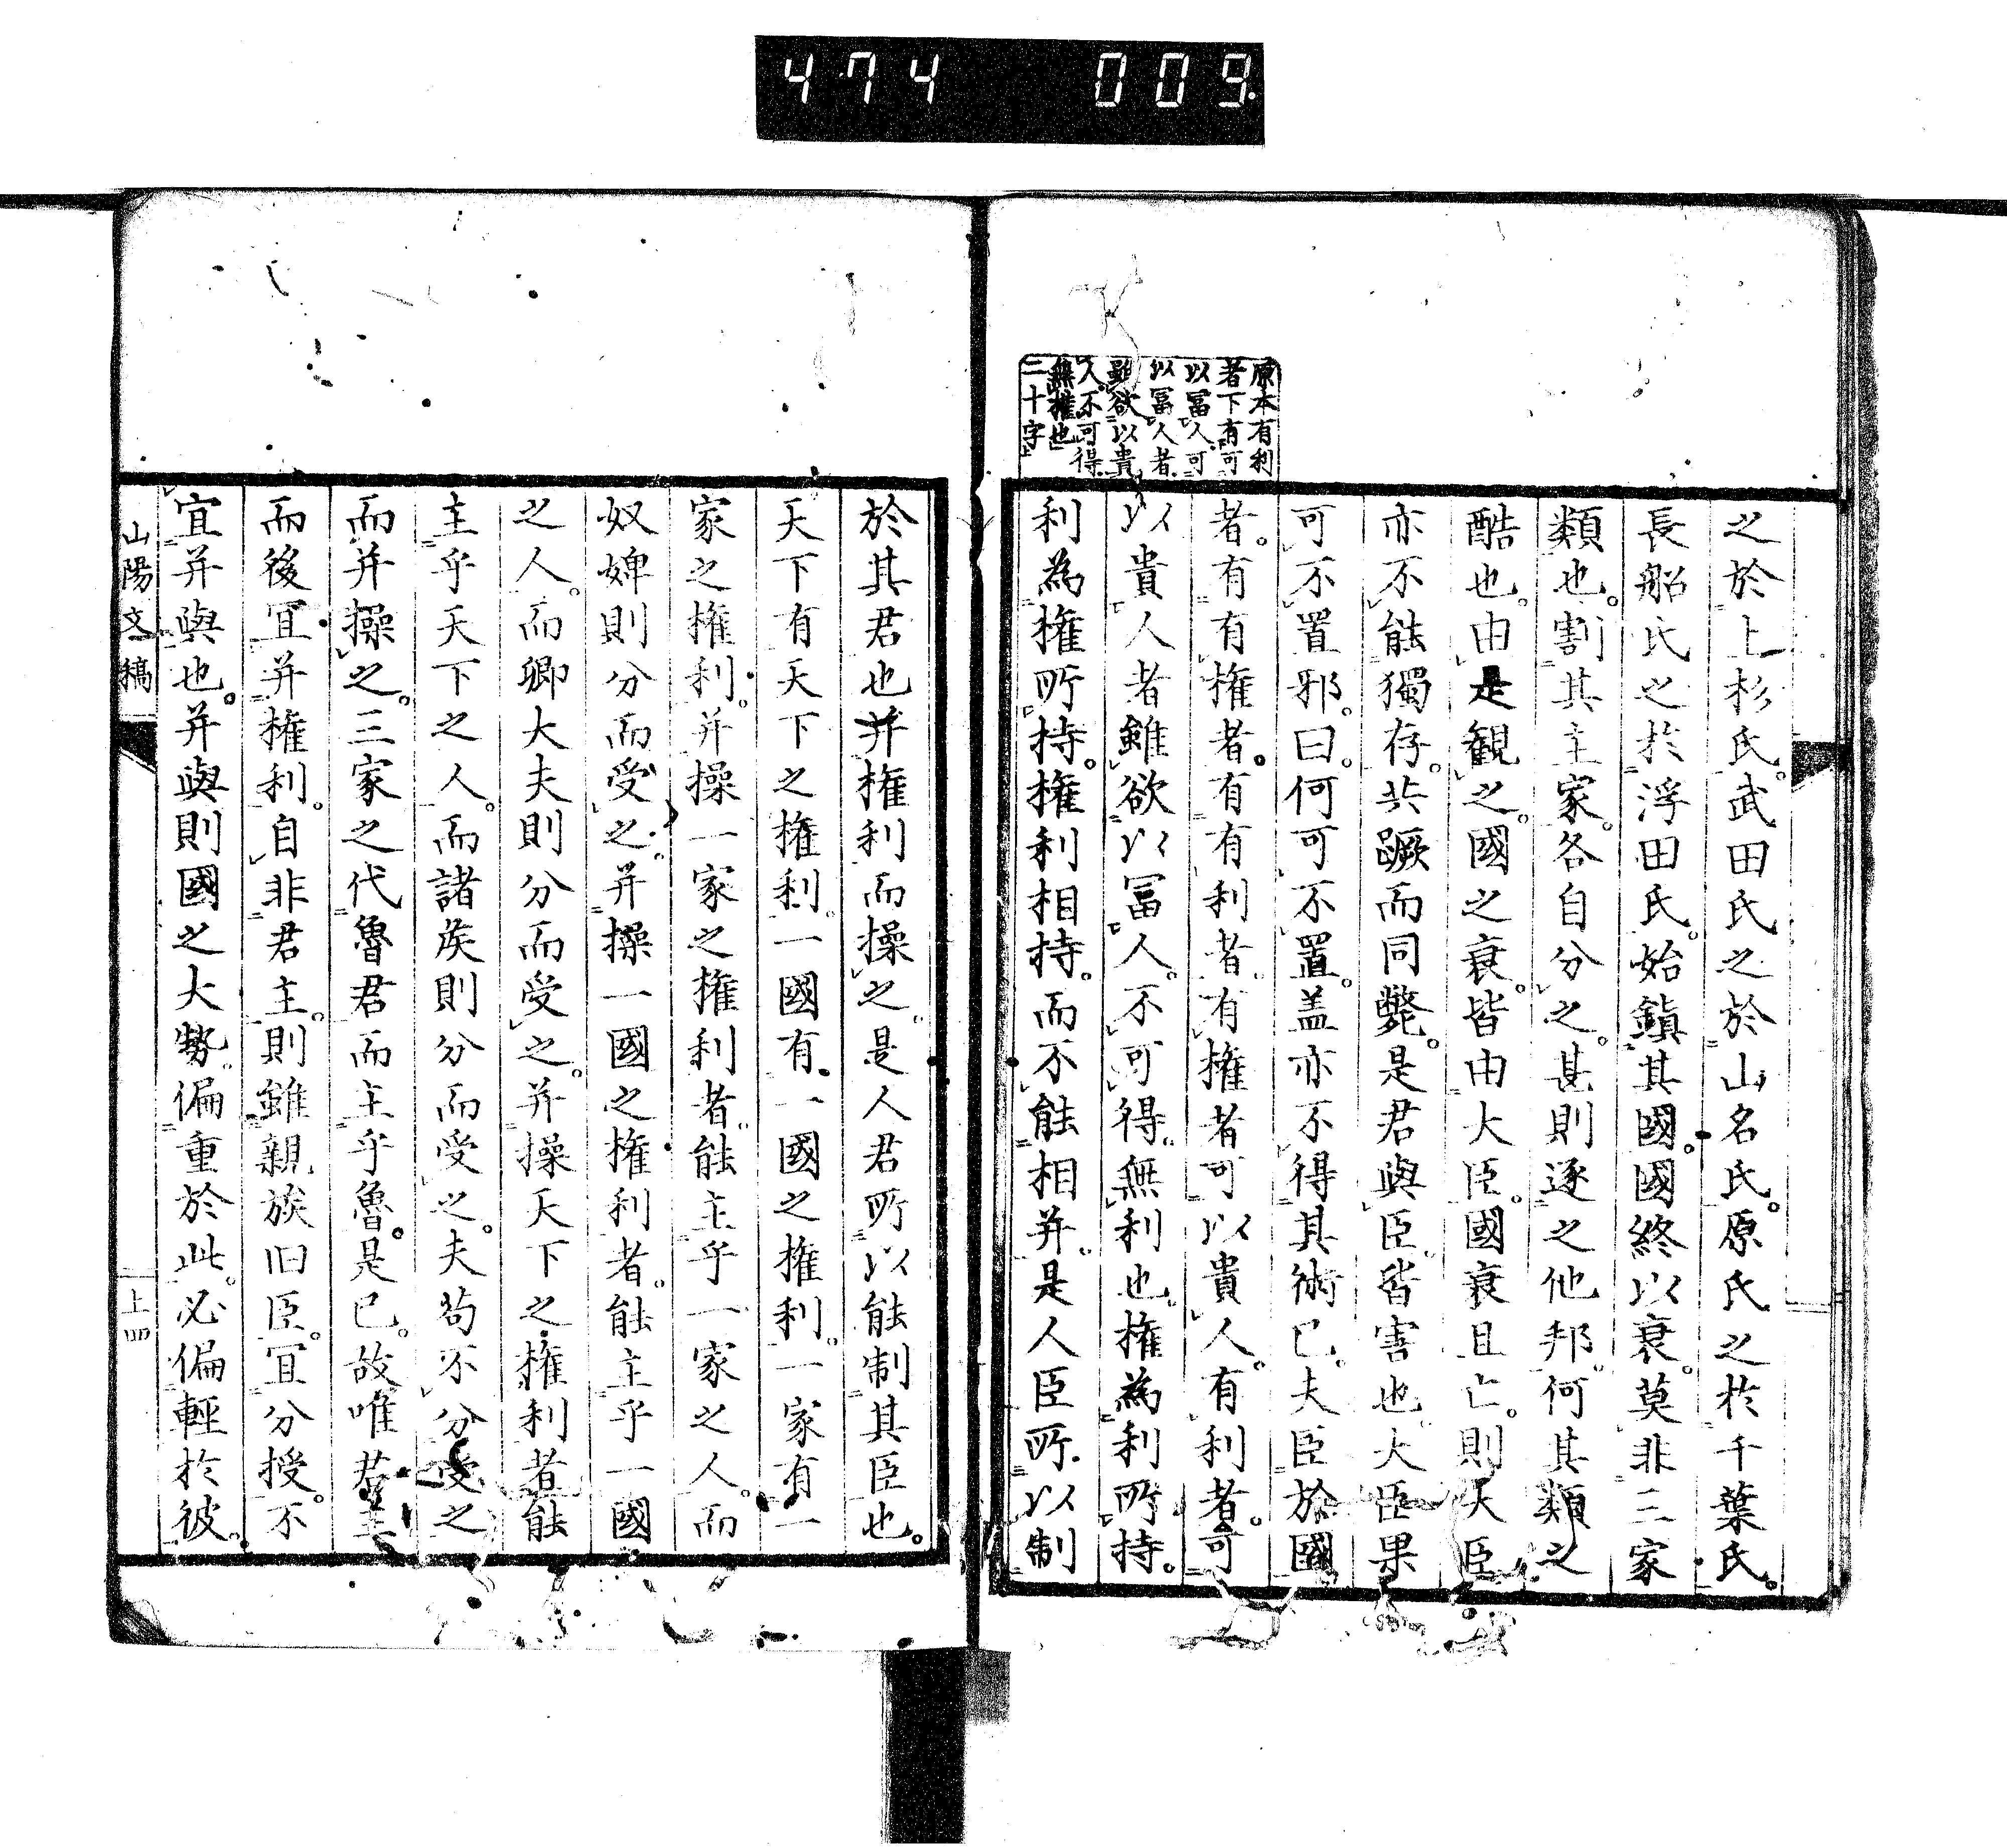 474 009
原本有利
者下有可
以冨人可
以冨人者
雖欲以貴
人不可得
無権也
二十字
之於上杉氏。武田氏之於山名氏。原氏之於千葉氏。
長船氏之於浮田氏。始鎮其國。國終以衰。莫非三家
類也。割其主家。各自分之。甚則逐之他邦。何其類之
酷也。由是観之。國之衰。皆由大臣。國衰且亡。則大臣
亦不能獨存。共蹶而同斃。是君與臣。皆害也。大臣果
可不置邪。曰。何可不置。盖亦不得其術已。夫臣於國
者。有有権者。有有利者。有権者可以貴人。有利者。可
以貴人者雖欲以冨人。不可得。無利也。権為利所持。
利為権所持。権利相持。而不能相并。是人臣所以制
於其君也并権利而操之。是人君所以能制其臣也。
天下有天下之権利。一國有一國之権利。一家有一
家之権利。并操一家之権利者。能主乎一家之人。而
奴婢則分而受之。并操一國之権利者。能主乎一國
之人。而卿大夫則分而受之。并操天下之権利者能
主乎天下之人。而諸侯則分而受之。夫苟不分受之
而并操之。三家之代魯君而主乎魯。是已。故唯君主
而後冝并権利。自非君主。則雖親族旧臣。冝分授。不
宜并與也。并與則國之大勢。偏重於此。必偏輕於彼。
山陽文稿
上四